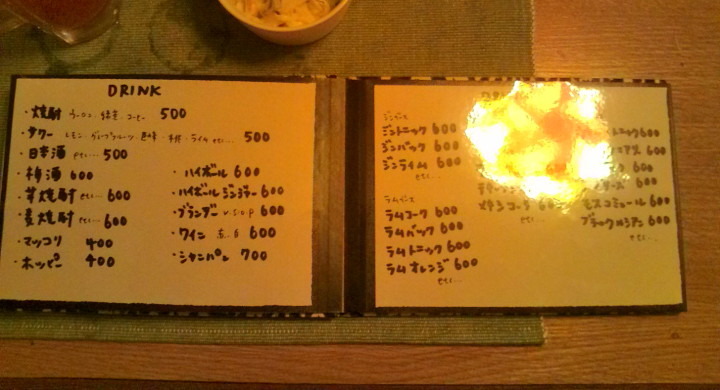 DRINK
・焼酎 ウーロン・緑茶・コーヒー 500
・サワー レモン・グレープフルーツ・巨峰・ライム etc... 500
・日本酒 etc... 500
・梅酒 600
・芋焼酎 etc... 600
・麦焼酎 etc... 600
・マッコリ 400
・ホッピー 400
・ハイボール 600
・ハイボールジンジャー 600
・ブランデー V.S.O.P 600
・ワイン 赤・白 600
・シャンパン 700
ジンベース
ジントニック 600
ジンバック 600
ジンライム 600
etc...
ラムベース
ラムコーク 600
ラムバック 600
ラムトニック 600
ラムオレンジ 600
etc...
メキシコーラ
etc...
トニック 600
600
600
モスコミュール 600
ブラックルシアン 600
etc...